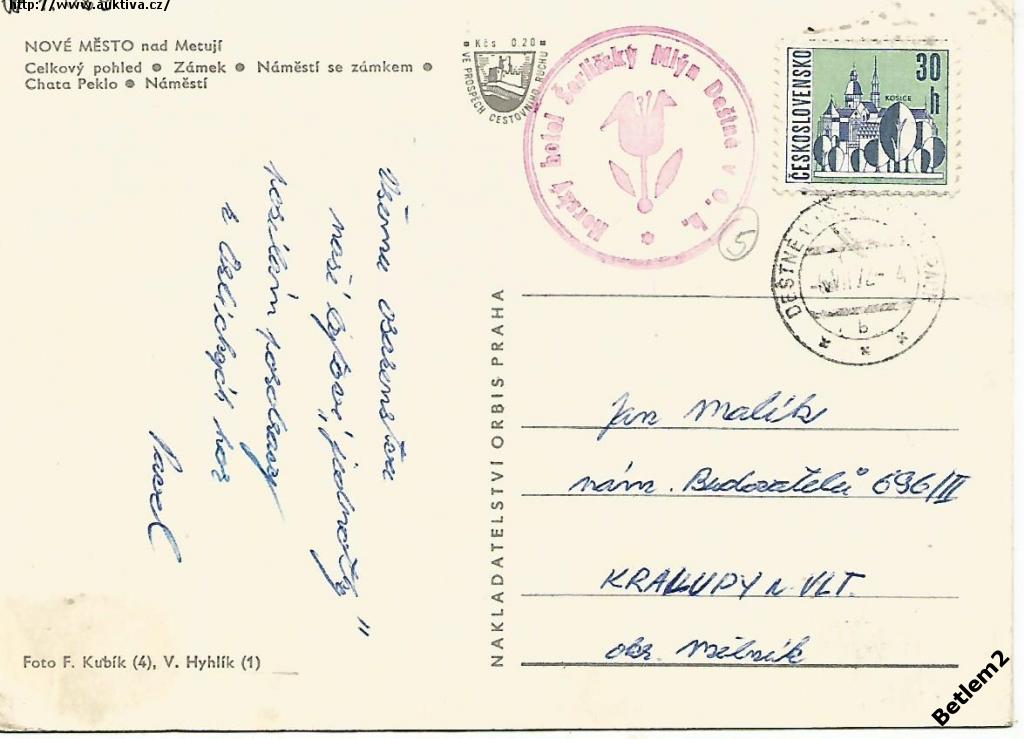 http://www.auktiva.cz/
NOVÉ MĚSTO nad Metují
Celkový pohled ● Zámek ● Náměstí se zámkem ●
Chata Peklo ● Náměstí
Kčs 0.20
VE PROSPĚCH CESTOVNÍHO RUCHU
Horský hotel Šerlišský Mlýn Deštné v O. h.
5
ČESKOSLOVENSKO
30 h
KOŠICE
DEŠTNÉ V
72-4
b
Všemu osazenstvu
naší bytové „jednotky"
posílám pozdravy
z Orlických hor
Pavel
NAKLADATELSTVÍ ORBIS PRAHA
Jan Malík
nám. Budovatelů 696/III
KRALUPY n. VLT.
okr. Mělník
Foto F. Kubík (4), V. Hyhlík (1)
Betlem2